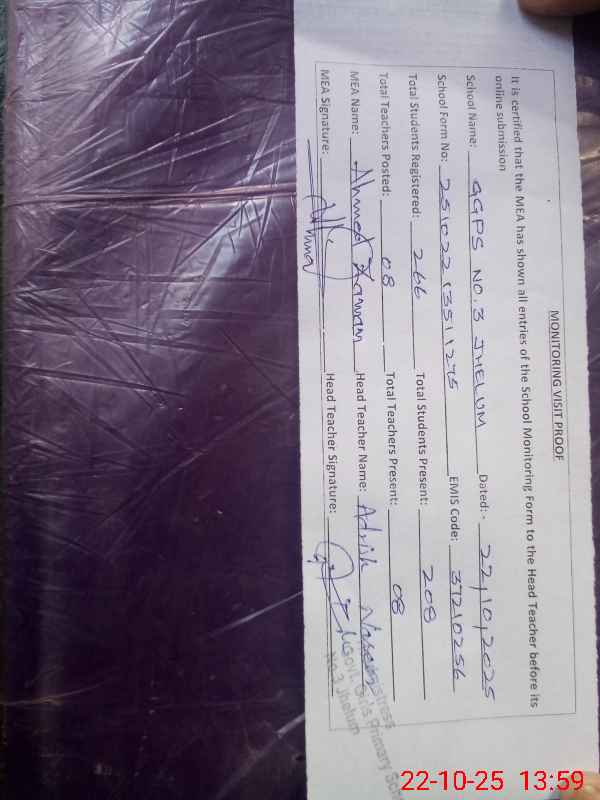 MONITORING VISIT PROOF
It is certified that the MEA has shown all entries of the School Monitoring Form to the Head Teacher before its
online submission
School Name: GGPS NO.3 JHELUM Dated:- 22,10,2025
School Form No: 25102213511275 EMIS Code: 37210256
Total Students Registered: 266 Total Students Present: 208
Total Teachers Posted: 08 Total Teachers Present: 08
MEA Name: Ahmed Zaman Head Teacher Name:
MEA Signature: Head Teacher Signature:
Govt. Girls Primary
No.3 Jhelum
22-10-25 13:59